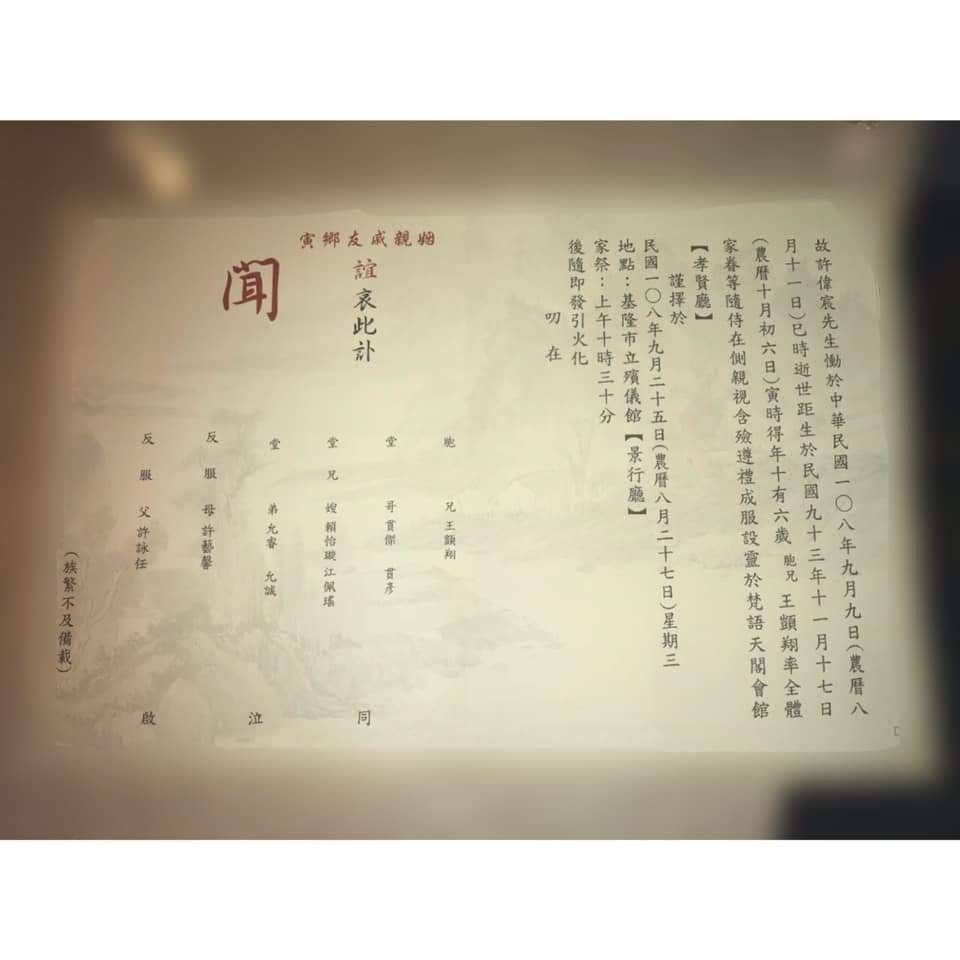 故許偉宸先生慟於中華民國一〇八年九月九日(農曆八
月十一日)巳時逝世距生於民國九十三年十一月十七日
(農曆十月初六日)寅時得年十有六歲 胞兄 王顗翔率全體
家眷等隨侍在側親視含殮遵禮成服設靈於梵語天閣會館
【孝賢廳】
謹擇於
民國一〇八年九月二十五日(農曆八月二十七日)星期三
地點：基隆市立殯儀館【景行廳】
家祭：上午十時三十分
後隨即發引火化
叨在
姻親戚友鄉寅
誼哀此訃
聞
胞兄 王顗翔
堂哥 貫傑 貫彥
堂兄嫂 賴怡璇 江佩瑤
堂弟 允睿 允誠
反服母 許藝馨
反服父 許詠任
同泣啟
(族繁不及備載)